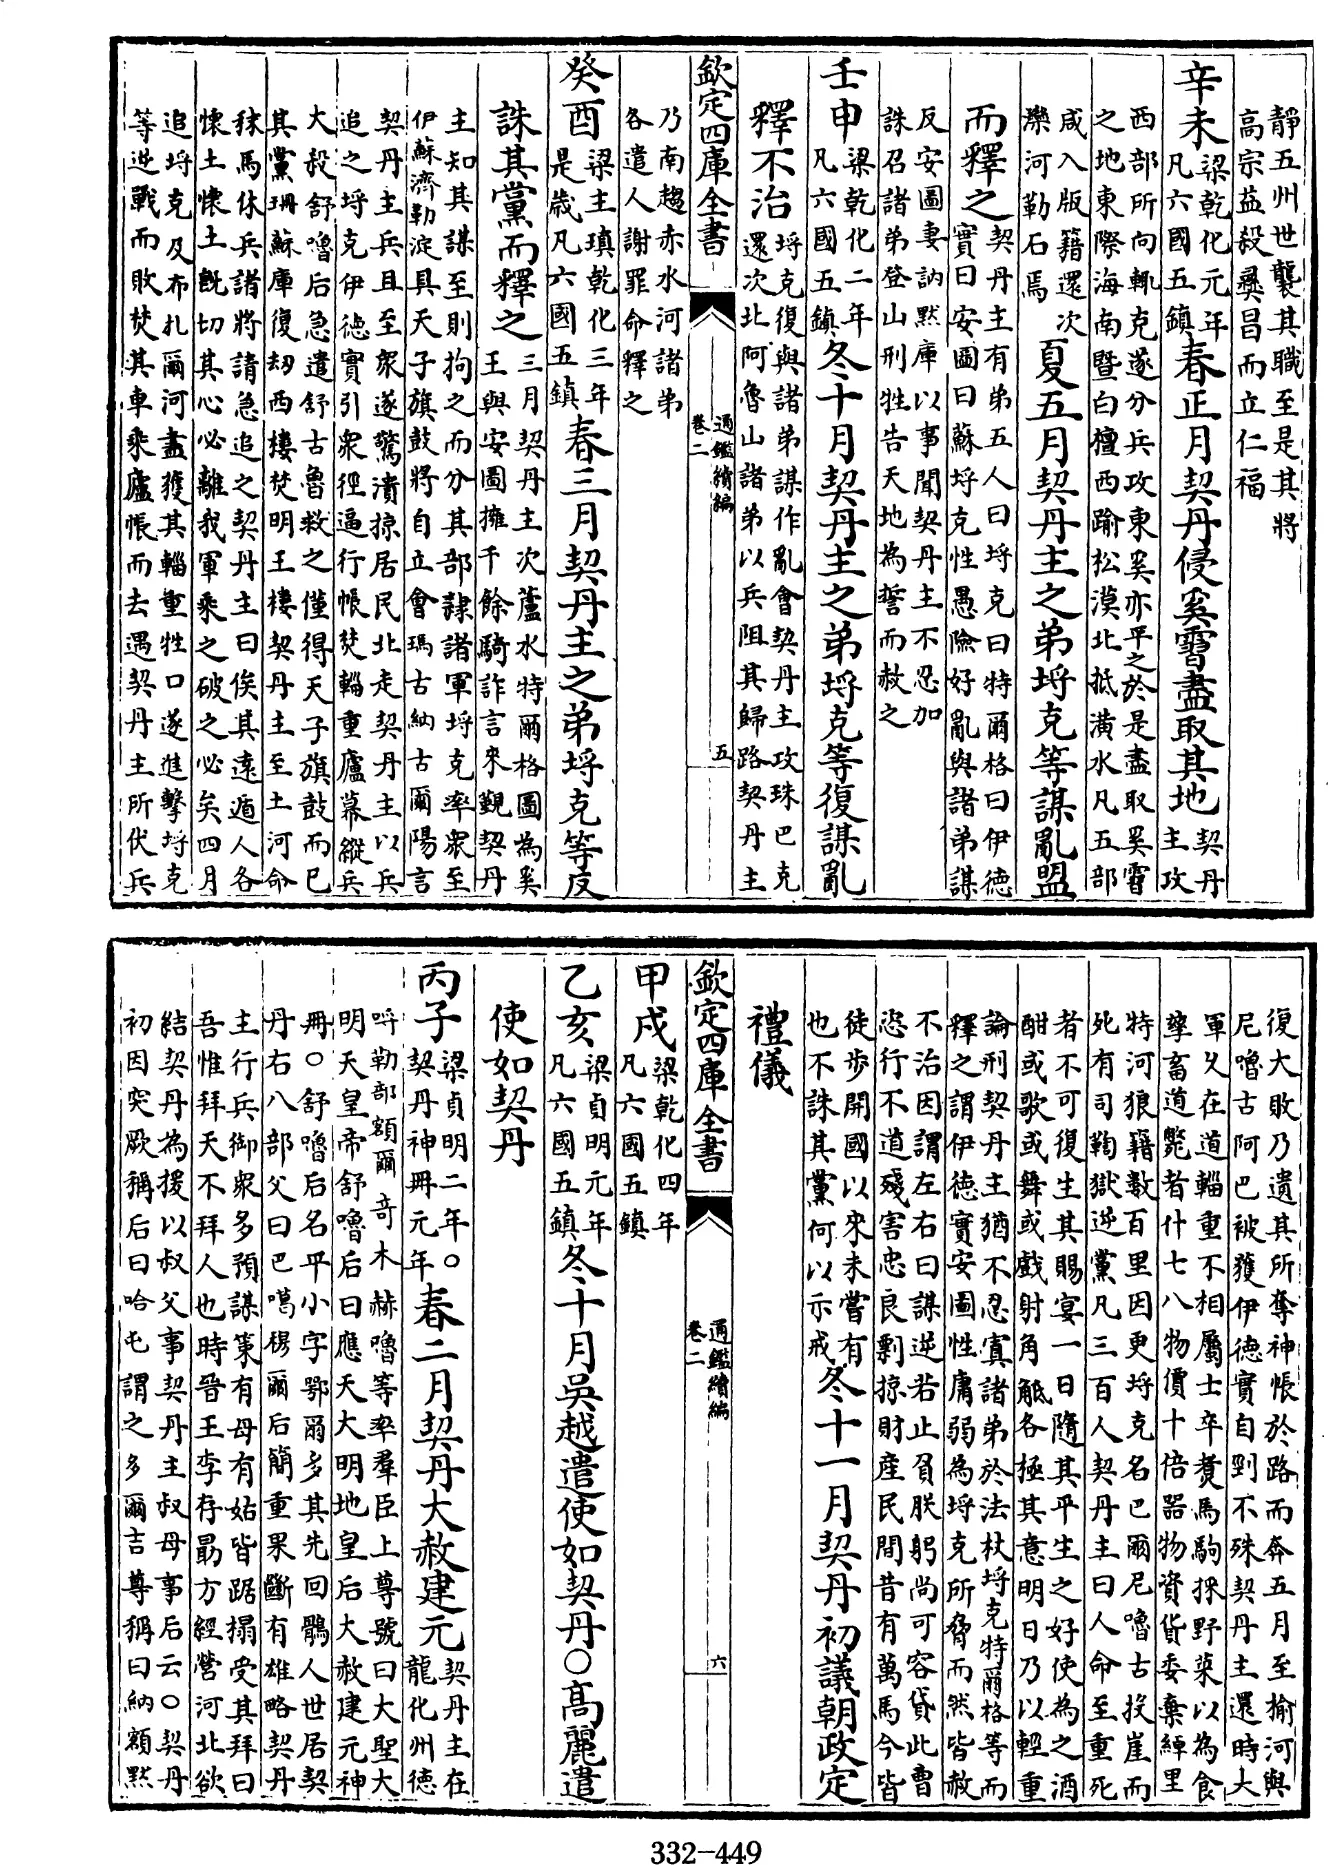 靜五州世襲其職至是其將
高宗益殺彞昌而立仁福
辛未梁乾化元年凡六國五鎮春正月契丹侵奚霫盡取其地契丹主攻
西部所向輒克遂分兵攻東奚亦平之於是盡取奚霫
之地東際海南暨白檀西踰松漠北抵潢水凡五部
咸入版籍還次灤河勒石焉夏五月契丹主之弟埒克等謀亂盟
而釋之契丹主有弟五人曰埒克曰特爾格曰伊德
實曰安圖曰蘇埒克性愚險好亂與諸弟謀
反安圖妻訥默庫以事聞契丹主不忍加
誅召諸弟登山刑牲告天地為誓而赦之
壬申梁乾化二年凡六國五鎮冬十月契丹主之弟埒克等復謀亂
釋不治埒克復與諸弟謀作亂會契丹主攻珠巴克
還次北阿魯山諸弟以兵阻其歸路契丹主
欽定四庫全書
通鑑續編
卷二
五
乃南趨赤水河諸弟
各遣人謝罪命釋之
癸酉梁主瑱乾化三年是歲凡六國五鎮春三月契丹主之弟埒克等反
誅其黨而釋之三月契丹主次蘆水特爾格圖為奚
王與安圖擁千餘騎詐言來覲契丹
主知其謀至則拘之而分其部隷諸軍埒克率衆至
伊蘇濟勒淀具天子旗鼓將自立會瑪古納古爾陽言
契丹主兵且至衆遂驚潰掠居民北走契丹主以兵
追之埒克伊德實引衆徑逼行帳焚輜重廬幕縱兵
大殺舒嚕后急遣舒古魯救之僅得天子旗鼓而已
其黨珊蘇庫復刼西樓焚明王樓契丹主至土河命
秣馬休兵諸將請急追之契丹主曰俟其遠遁人各
懷土懷土旣切其心必離我軍乘之破之必矣四月
追埒克及布扎爾河盡獲其輜重牲口遂進擊埒克
等逆戰而敗焚其車乘廬帳而去遇契丹主所伏兵
復大敗乃遺其所奪神帳於路而奔五月至揄河與
尼嚕古阿巴被獲伊德實自剄不殊契丹主還時大
軍久在道輜重不相屬士卒煑馬駒採野菜以為食
孳畜道斃者什七八物價十倍器物資貨委棄綽里
特河狼籍數百里因更埒克名巴爾尼嚕古投崖而
死有司鞫獄逆黨凡三百人契丹主曰人命至重死
者不可復生其賜宴一日隨其平生之好使為之酒
酣或歌或舞或戲射角觝各極其意明日乃以輕重
論刑契丹主猶不忍寘諸弟於法杖埒克特爾格等而
釋之謂伊德實安圖性庸弱為埒克所脅而然皆赦
不治因謂左右曰謀逆若止負朕躬尚可容貸此曹
恣行不道殘害忠良剽掠財產民間昔有萬馬今皆
徒步開國以來未嘗有
也不誅其黨何以示戒冬十一月契丹初議朝政定
禮儀
欽定四庫全書
通鑑續編
卷二
六
甲戌梁乾化四年凡六國五鎮
乙亥梁貞明元年凡六國五鎮冬十月吳越遣使如契丹○高麗遣
使如契丹
丙子梁貞明二年○契丹神冊元年春二月契丹大赦建元契丹主在龍化州德
呼勒部額爾竒木赫嚕等率羣臣上尊號曰大聖大
明天皇帝舒嚕后曰應天大明地皇后大赦建元神
冊○舒嚕后名平小字鄂爾多其先回鶻人世居契
丹右八部父曰巴噶穆爾后簡重果斷有雄略契丹
主行兵御衆多預謀策有母有姑皆踞榻受其拜曰
吾惟拜天不拜人也時晉王李存勗方經營河北欲
結契丹為援以叔父事契丹主叔母事后云○契丹
初因突厥稱后曰哈屯謂之多爾吉尊稱曰納額黙
332-449